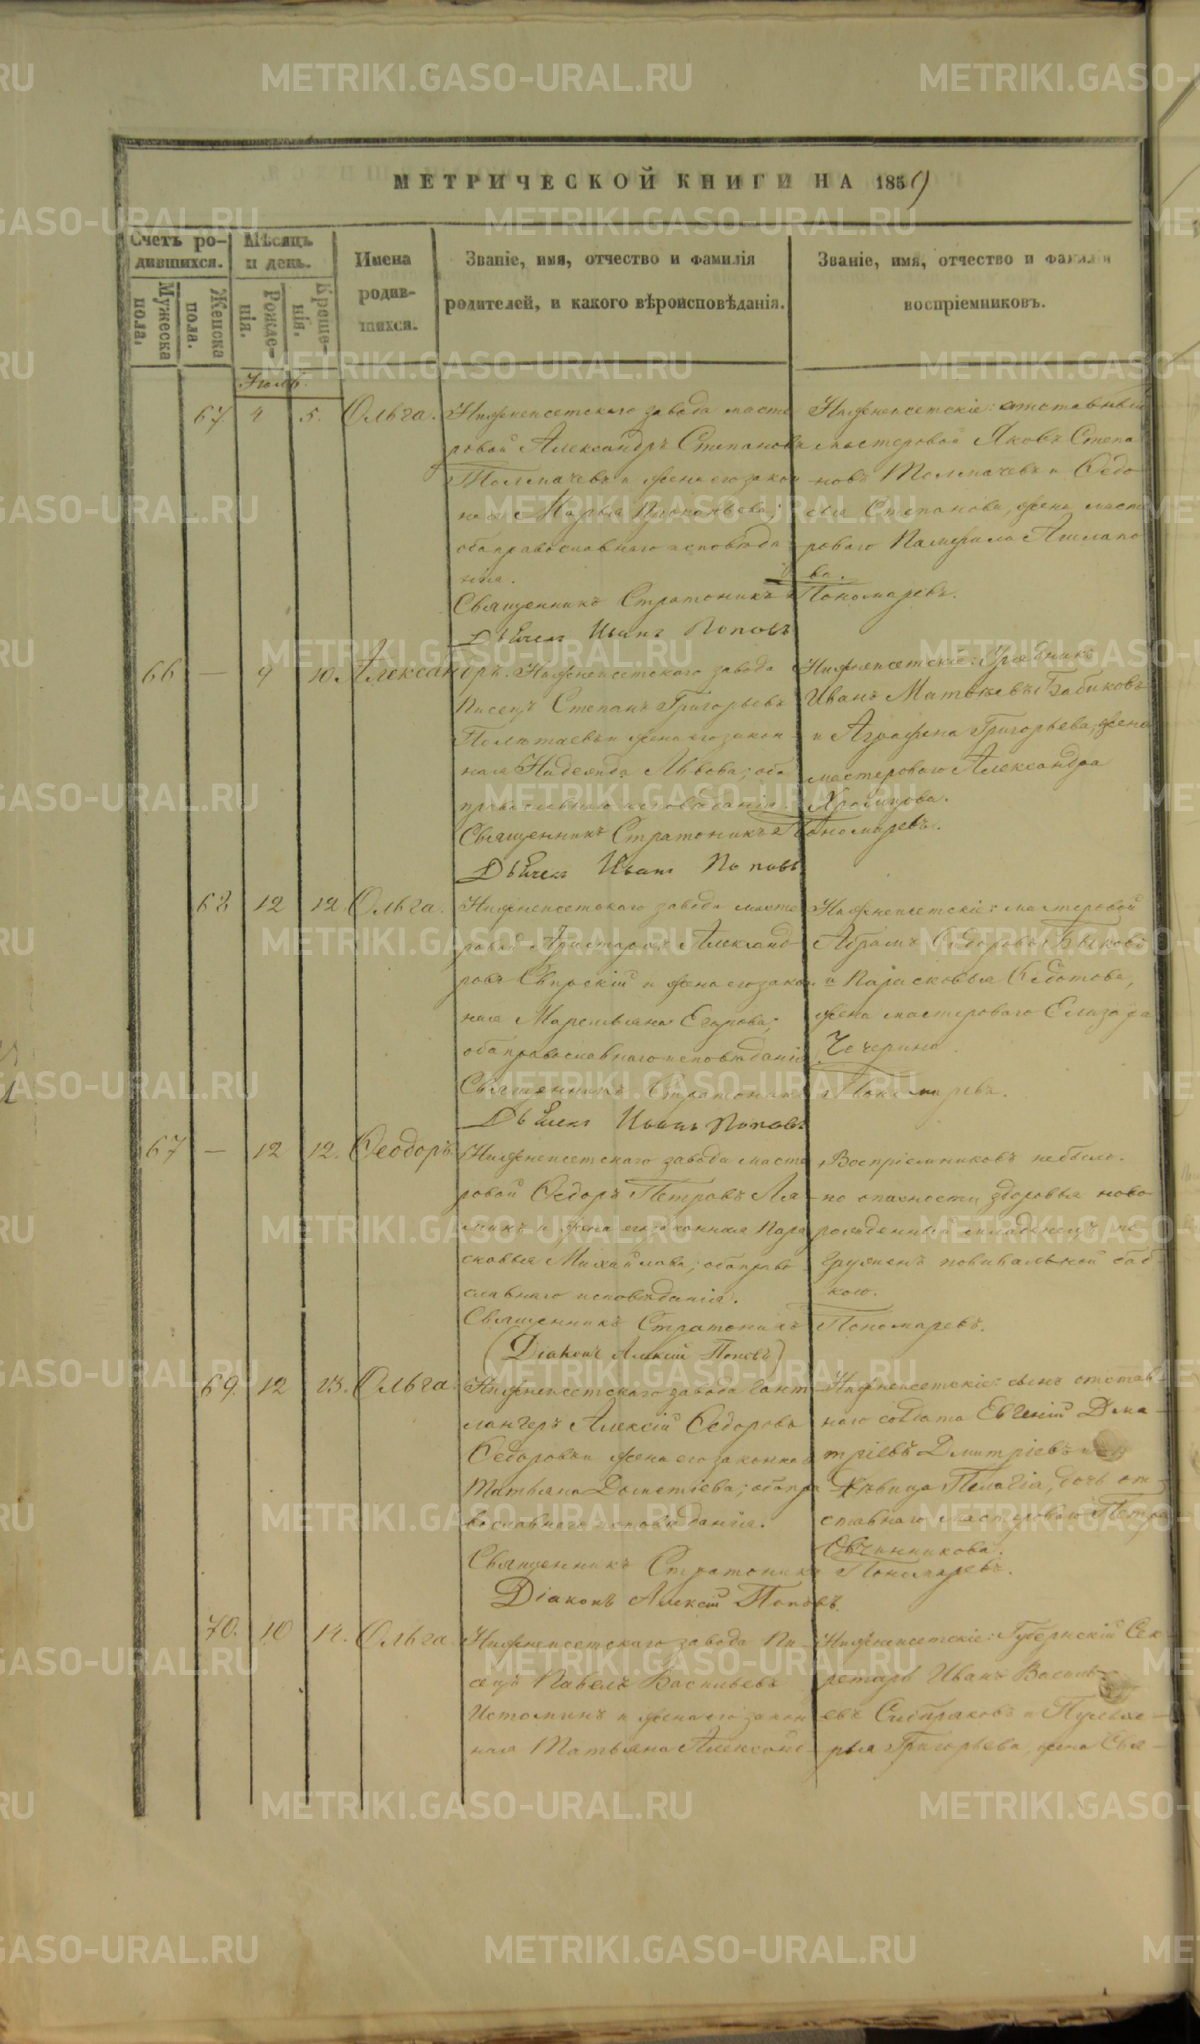 МЕТРИЧЕСКОЙ КНИГИ НА 1859
Счетъ ро-
дившихся.
Мужеска
пола.
Женска
пола.
Мѣсяцъ
и день.
Рожде-
нія.
Креще-
нія.
Имена
родив-
шихся.
Званіе, имя, отчество и фамилія
родителей, и какого вѣроисповѣданія.
Званіе, имя, отчество и фамилія
воспріемниковъ.
Іюль
67 4 5. Ольга.
Нижнеисетскаго завода масте
ровой Александръ Степановъ
Толмачевъ и жена его закон
ная Марья Прокопьева;
оба православнаго исповѣда
нія.
Священникъ Стратоникъ Пономаревъ.
Дьячекъ Иванъ Поповъ
Нижнеисетскіе: отставный
мастеровой Яковъ Степа
новъ Толмачевъ и Ѳедо
сья Степанова, жена масте
роваго Памфила
ва.
66 — 9 10. Александръ.
Нижнеисетскаго завода
Писецъ Степанъ Григорьевъ
Полетаевъ и жена его закон
ная Надежда Львова; оба
православнаго исповѣданія.
Священникъ Стратоникъ Пономаревъ.
Дьячекъ Иванъ Поповъ
Нижнеисетскіе:
Иванъ Матвѣевъ Бабиковъ
и Аграфена Григорьева, жена
мастероваго Александра
68 12 12 Ольга.
Нижнеисетскаго завода масте
ровой Аристархъ Александ
ровъ Свирскій и жена его закон
ная Маремьяна Егорова;
оба православнаго исповѣданія
Священникъ Стратоникъ Пономаревъ.
Дьячекъ Иванъ Поповъ
Нижнеисетскіе: мастеровой
Абрамъ Ѳедоровъ Быковъ
и Парасковья Ѳедотова,
жена мастероваго Елизара
Чечерина.
67 — 12 12. Ѳеодоръ
Нижнеисетскаго завода масте
ровой Ѳедоръ Петровъ Ля
минъ и жена его законная Пара
сковья Михайлова; оба право
славнаго исповѣданія.
Священникъ Стратоникъ Пономаревъ.
(Діаконъ Алексій Поповъ)
Воспріемниковъ небыло.
по опасности здоровья ново
рожденный младенецъ по
груженъ повивальной баб
кою.
69. 12 13. Ольга.
Нижнеисетскаго завода Гант
лангеръ Алексій Ѳедоровъ
Ѳедоровъ и жена его законная
Татьяна Дометіева; оба пра
вославнаго исповѣданія.
Священникъ Стратоникъ Пономаревъ.
Діаконъ Алексій Поповъ.
Нижнеисетскіе: сынъ отстав
наго солдата Евгеній Дми
тріевъ Дмитріевъ и
дѣвица Пелагія, дочь от
ставнаго мастероваго Петра
Овчинникова.
70. 10 14. Ольга
Нижнеисетскаго завода Пи
сецъ Павелъ Васильевъ
Истоминъ и жена его закон
ная Татьяна Алексѣе
Нижнеисетскіе: Губернскій Сек
ретарь Иванъ Василь
евъ и Пульхе
рья Григорьева, жена Свя
METRIKI.GASO-URAL.RU